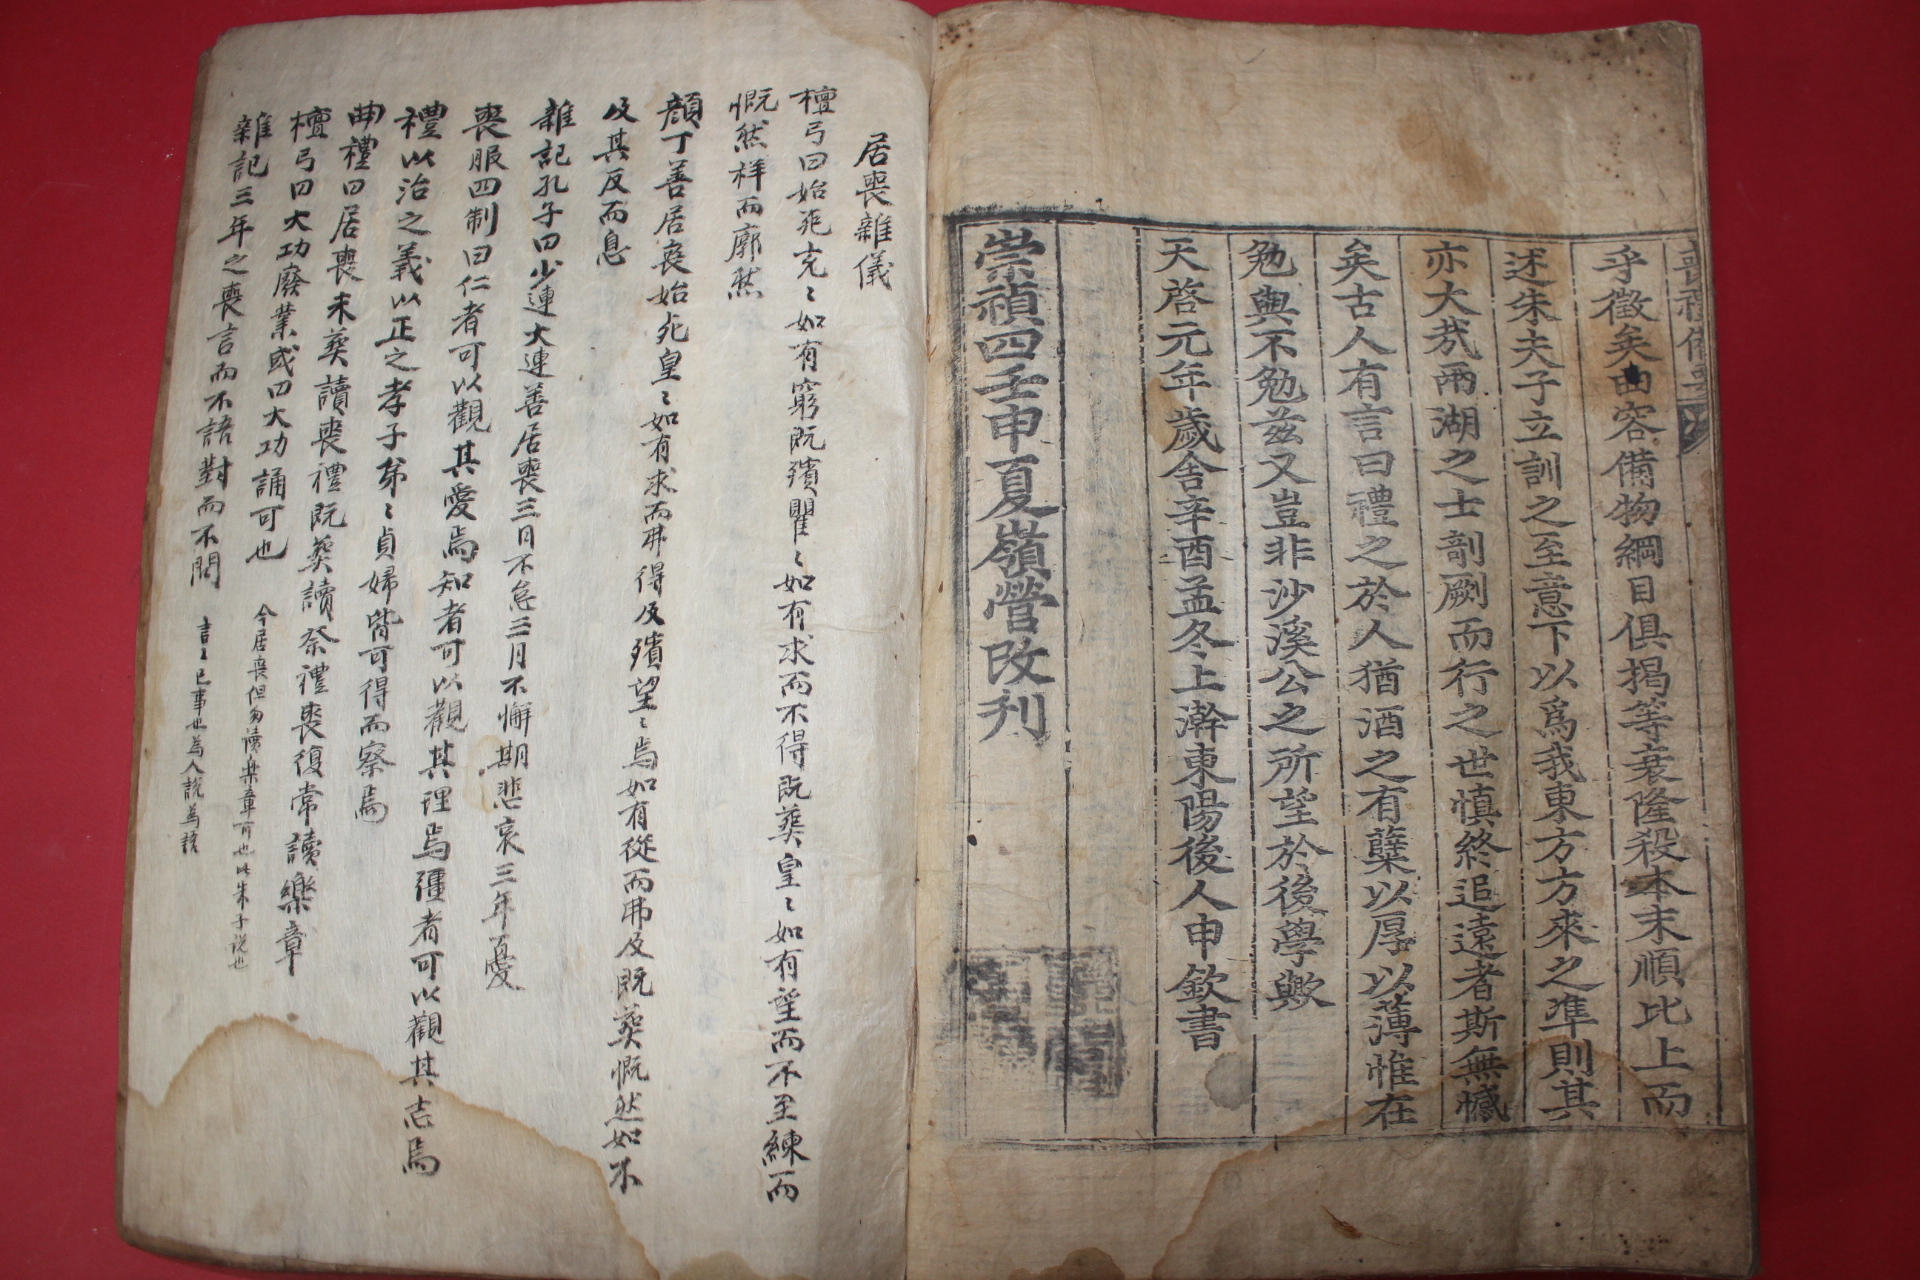 喪禮備要
乎徵矣曲容備物綱目俱揭等衰隆殺本末順比上而
述朱夫子立訓之至意下以爲我東方方來之準則其
亦大哉兩湖之士剞劂而行之世愼終追遠者斯無憾
矣古人有言曰禮之於人猶酒之有蘖以厚以薄惟在
勉與不勉玆又豈非沙溪公之所望於後學歟
天啓元年歲舍辛酉孟冬上澣東陽後人申欽書
崇禎四壬申夏嶺營改刊
居喪雜儀
檀弓曰始死充〻如有窮既殯瞿〻如有求而不得既葬皇〻如有望而不至練而
慨然祥而廓然
顔丁善居喪始死皇〻如有求而弗得及殯望〻焉如有從而弗及既葬慨然如不
及其反而息
雜記孔子曰少連大連善居喪三日不怠三月不懈期悲哀三年憂
喪服四制曰仁者可以觀其愛焉知者可以觀其理焉彊者可以觀其志焉
禮以治之義以正之孝子弟〻貞婦皆可得而察焉
曲禮曰居喪未葬讀喪禮既葬讀祭禮喪復常讀樂章
檀弓曰大功廢業或曰大功誦可也
今居喪但勿讀樂章可也此朱子說也
雜記三年之喪言而不語對而不問
言〻已事也為人說為語